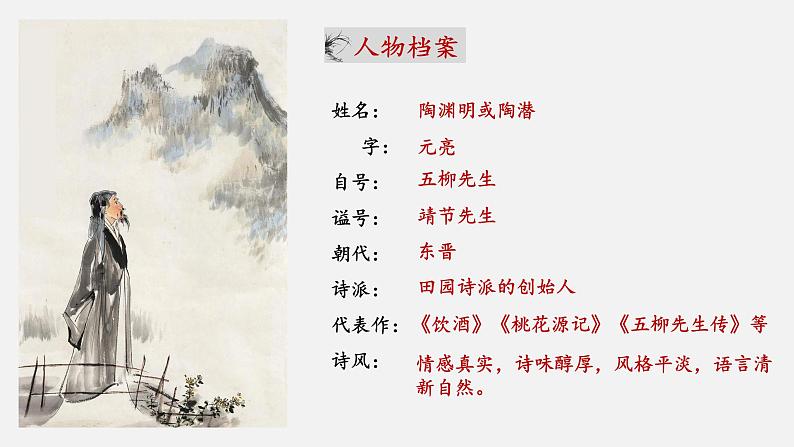 人物档案
姓名： 陶渊明或陶潜
字： 元亮
自号： 五柳先生
谥号： 靖节先生
朝代： 东晋
诗派： 田园诗派的创始人
代表作：《饮酒》《桃花源记》《五柳先生传》等
诗风： 情感真实，诗味醇厚，风格平淡，语言清
新自然。